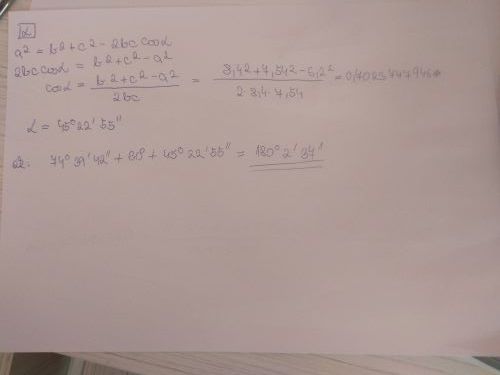 α
a² = b² + c² - 2bc cosα
2bc cosα = b² + c² - a²
cosα = b² + c² - a² / 2bc = 3,4² + 7,54² - 5,2² / 2·3,4·7,54 =
α = 45° 22' 55"
74° 39' 42" + 60° + 45° 22' 55" = 180° 2' 37"